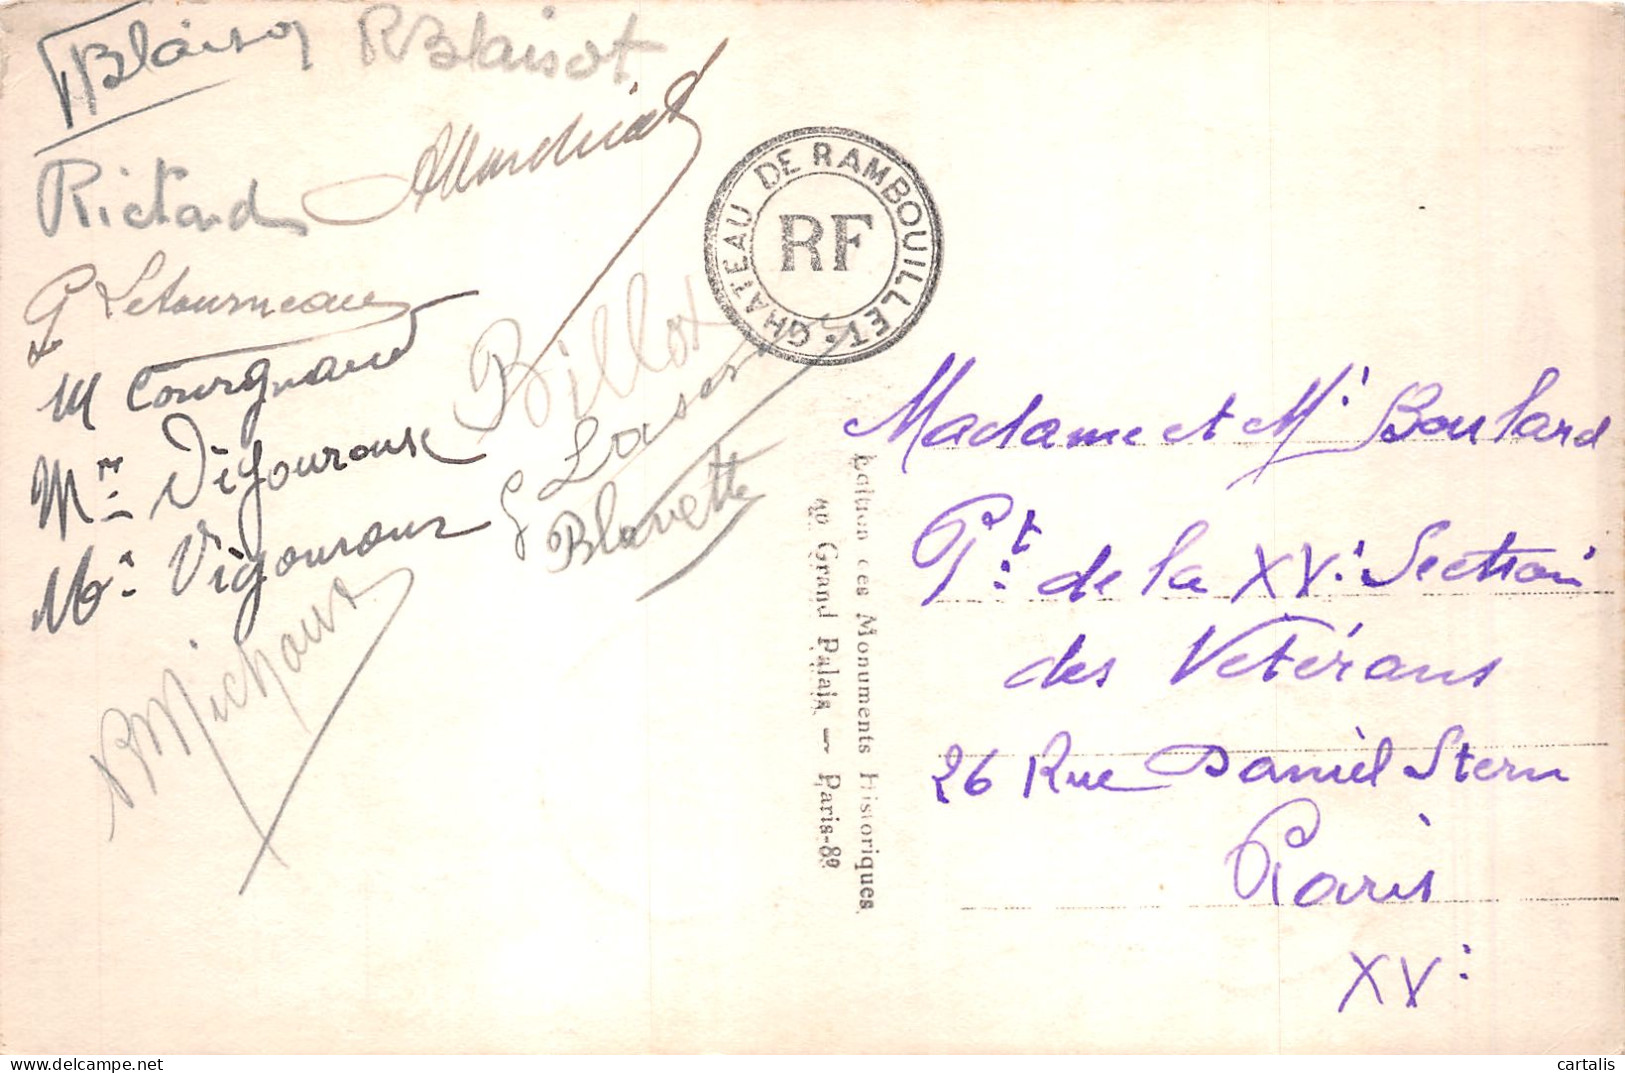 Blaisot RBlaisot
Rictard
G Letourneau
M Courgnaud
Billot
Mr Vigouroux
Me Vigouroux
Blavette
Michaux
CHATEAU DE RAMBOUILLET
RF
Edition des Monuments Historiques
4D Grand Palais — Paris-8e
Madame et Mr Boulard
Pt de la XVe Section
des Vétérans
26 Rue Daniel Stern
Paris
XVe
cartalis